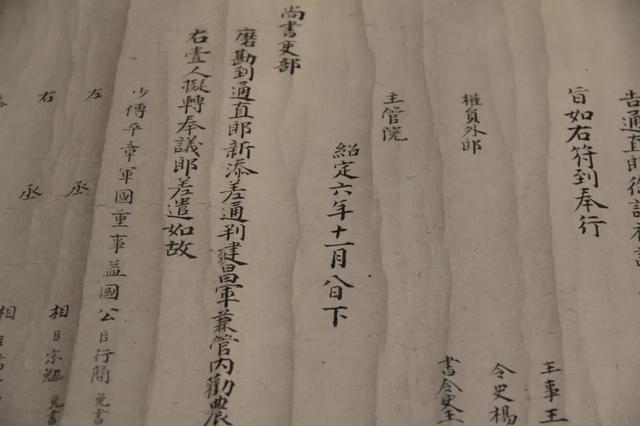 告通直郎徐謂禮
旨如右符到奉行
主事王
權員外郎
令史楊
書令史王
主管院
紹定六年十一月八日下
尚書吏部
磨勘到通直郎新添差通判建昌軍兼管内勸農
右壹人擬轉奉議郎差遣如故
少傅平章軍國重事益國公臣行簡免書
左丞相臣宗勉免書
右丞相